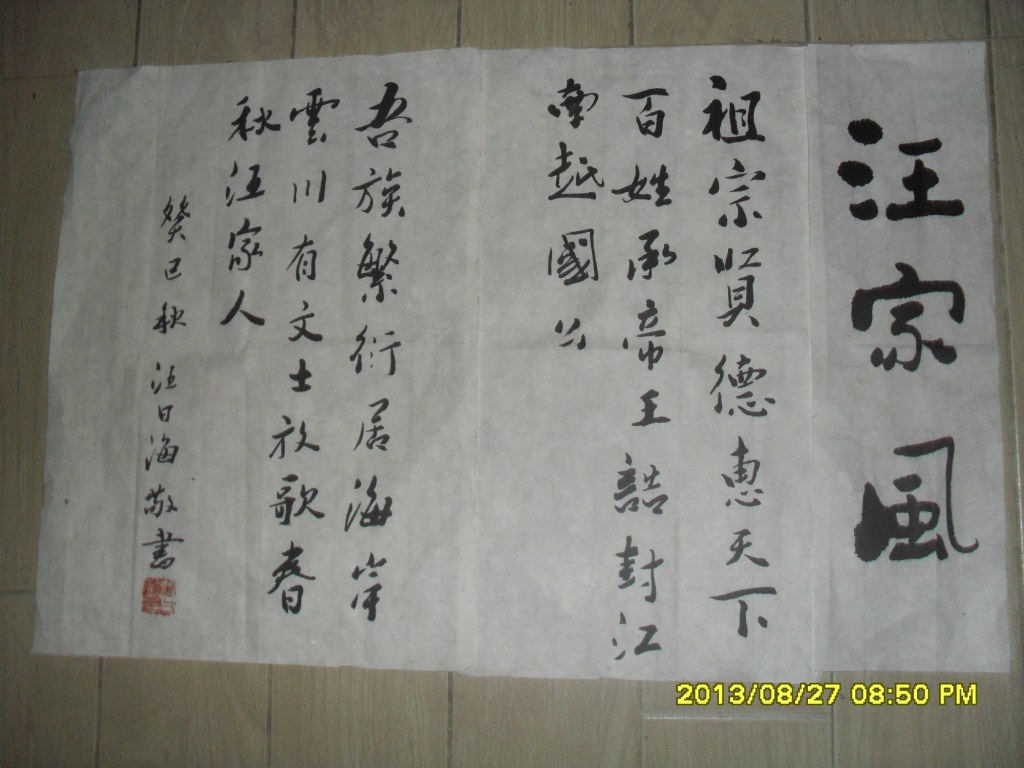 汪家風
祖宗賢德惠天下
百姓承帝王誥封江
南越國公
吾族繁衍居海岸
雲川有文士放歌春
秋汪家人
癸巳秋 汪日海敬書
2013/08/27 08:50 PM